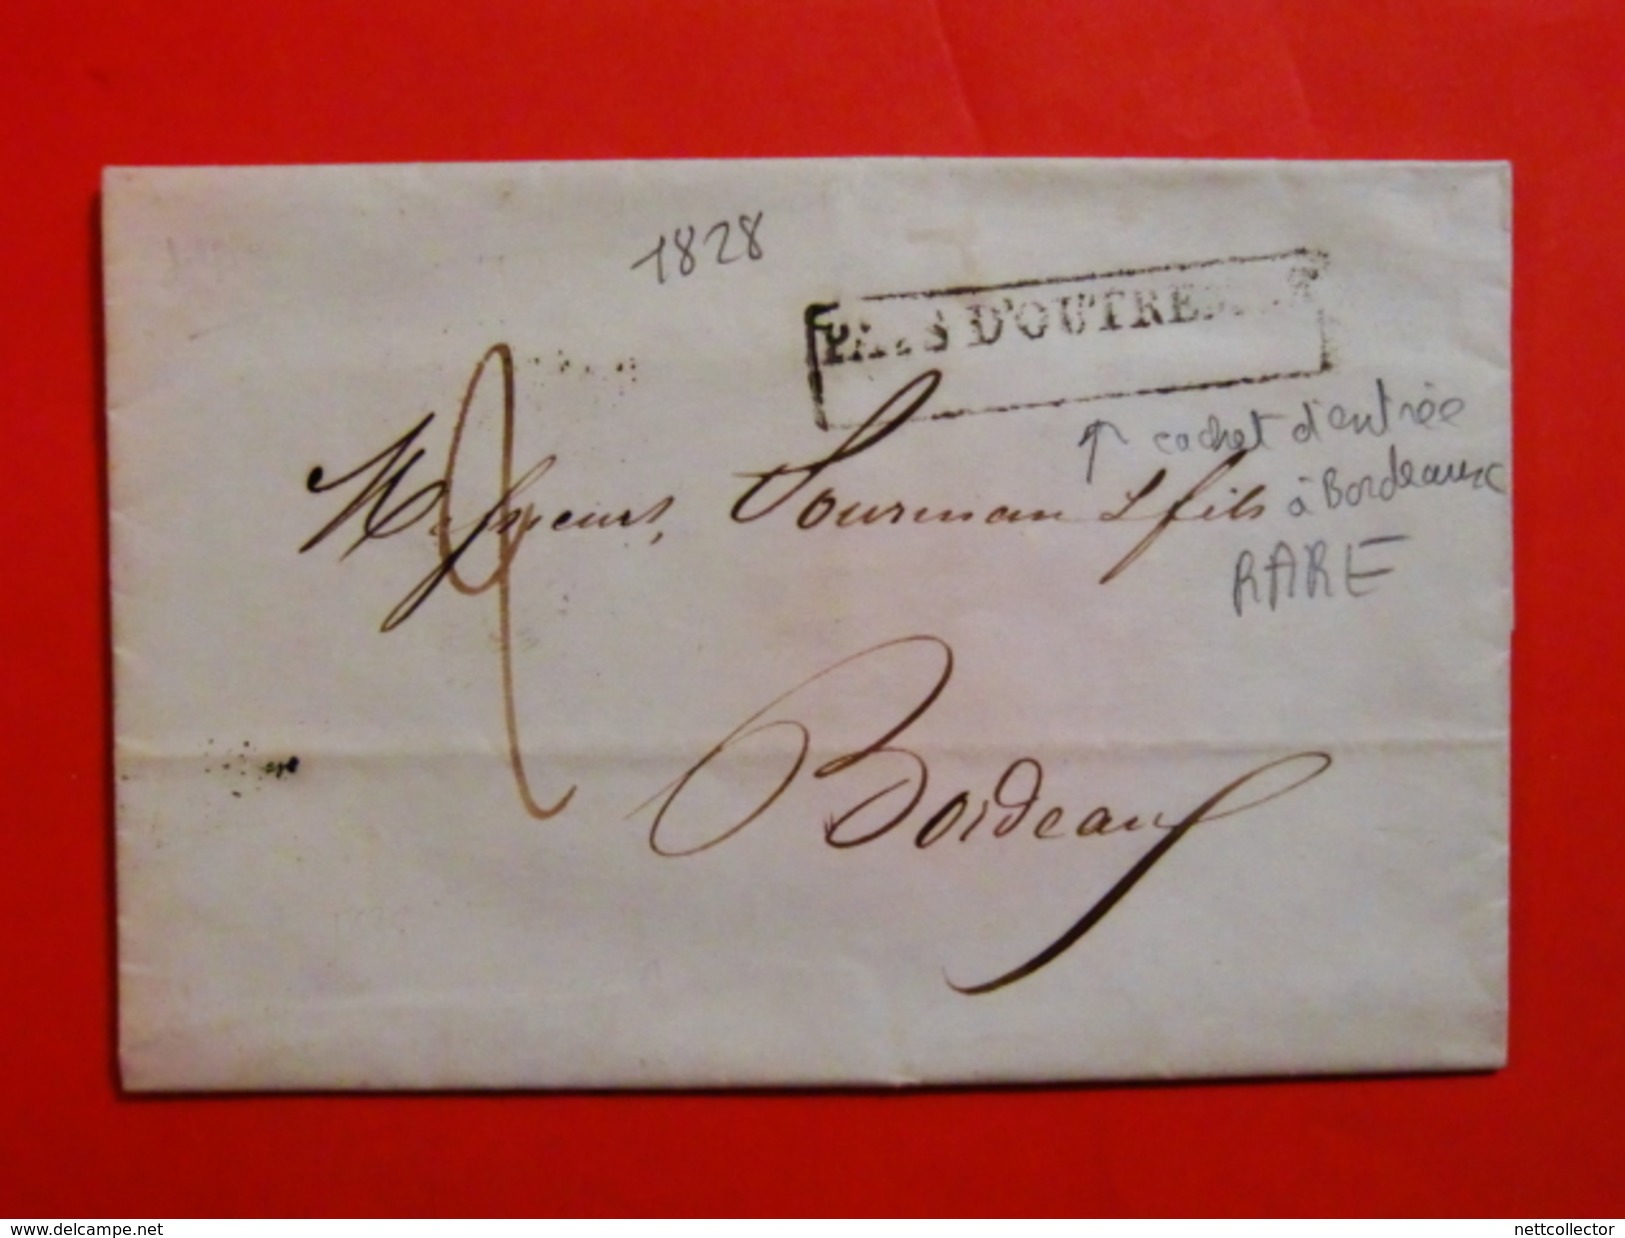 1828
PAYS D'OUTREMER
↑ cachet d'entrée
à Bordeaux
RARE
2
Messieurs, Sourman & fils
Bordeaux
www.delcampe.net
nettcollector